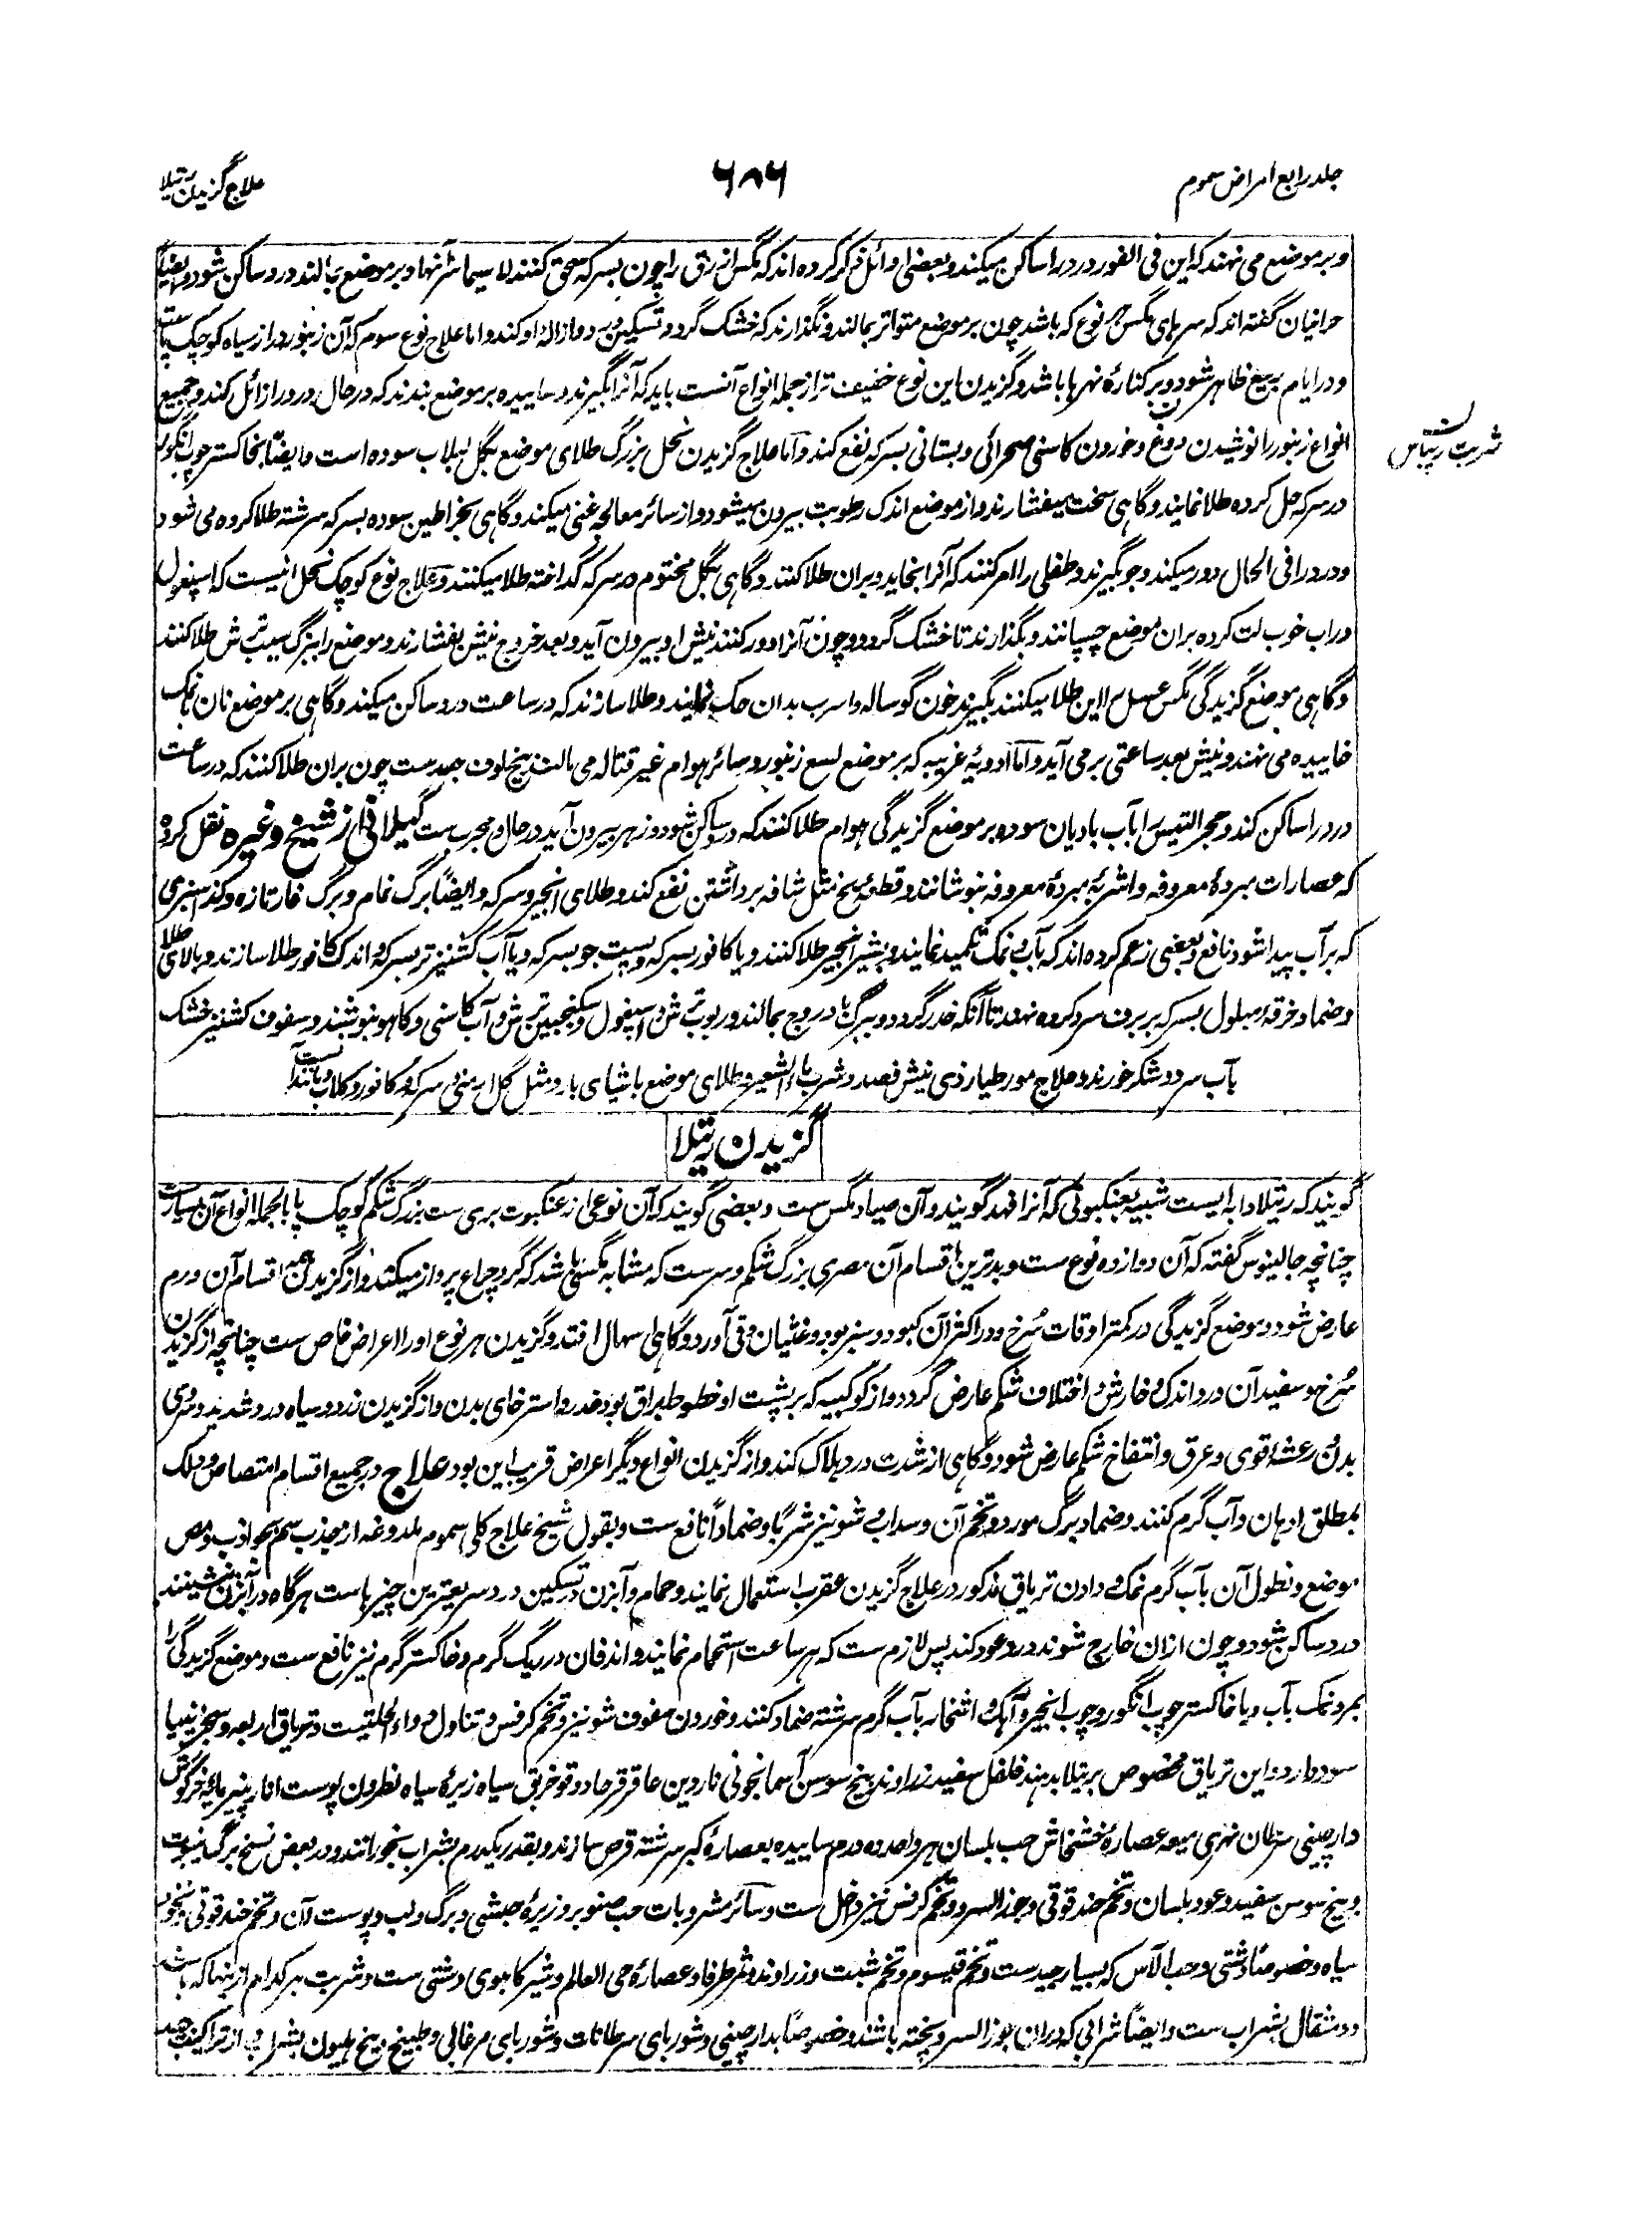 جلد رابع امراض سموم
۶۸۶
علاج گزیدن رتیلا
و بر موضع می نهند که این فی الفور درد را ساکن میکند و بعضی اوائل ذکر کرده اند که مگس ازرق را چون بسرکه سحق کنند لا سیما سر آنها و بر موضع بمالند درد ساکن شود و بعضی
حرانیان گفته اند که سرهای مگس هر نوع که باشد چون بر موضع متواتر بمالند و نگذارند که خشک گردد تسکین درد و ازالهٔ او کند و اما علاج نوع سوم که آن زنبور دراز سیاه کوچک
و در ایام ربیع ظاهر شود و بر کنارهٔ نهرها باشد و گزیدن این نوع خفیف تر از جمله انواع آنست باید که آنرا بگیرند و ساییده بر موضع بندند که در حال درد را زائل کند و جمیع
انواع زنبور را نوشیدن دوغ و خوردن کاسنی صحرائی و بستانی بسرکه نفع کند و اما علاج گزیدن نحل بزرگ طلای موضع بگل بلبلاب سوده است و ایضاً بخاکستر چوب انگور
شربت ریباس
در سرکه حل کرده طلا نمایند و گاهی سخت میفشارند و از موضع اندک رطوبت بیرون میشود و از سائر معالجه غنی میکند و گاهی بخراطین سوده بسرکه سرشته طلا کرده می شود
و درد را فی الحال دور میکند و جو بگیرند و طفلی را امر کنند که آنرا بخاید و بران طلا کنند و گاهی بگل مختوم در سرکه گداخته طلا میکنند و علاج نوع کوچک نحل اینست که اسپغول
در آب خوب لت کرده بران موضع چسپانند و بگذارند تا خشک گردد و چون آنرا دور کنند نیش او بیرون آید و بعد خروج نیش بفشارند و موضع را ببرگ سیب ترش طلا کنند
و گاهی موضع گزیدگی مگس عسل را این طلا میکنند بگیرند خون گوساله و اسرب بدان حک نمایند و طلا سازند که در ساعت درد ساکن میکند و گاهی بر موضع نان بنمک
خاییده می نهند و نیش بعد ساعتی بر می آید و اما ادویهٔ غریبه که بر موضع لسع زنبور و سائر هوام غیر قتاله می مالند بیخ لوف جید ست چون بران طلا کنند که در ساعت
درد را ساکن کند و حجر التیس را بآب بادیان سوده بر موضع گزیدگی هوام طلا کنند که درد ساکن شود و زهر بیرون آید در حال و مجرب ست گیلانی از شیخ و غیره نقل کرده
که عصارات مبردهٔ معروفه و اشربهٔ مبردهٔ معروفه بنوشانند و قطعهٔ یخ مثل شافه برداشتن نفع کند و طلای انجیر و سرکه و ایضاً برگ نمام و برگ غار تازه و کذا سبزی
که بر آب پیدا شود نافع و بعضی زعم کرده اند که بآب نمک تکمید نمایند و بشیر انجیر طلا کنند و یا کافور بسرکه و پست جو بسرکه و یا آب کشنیز تر بسرکه و اندک کافور طلا سازند و بالای طلا
و ضماد خرقهٔ مبلول بسرکه بر برف سرد کرده نهند تا آنکه خدر گردد و ببرگ بادروج بمالند و رب ترش و اسپغول و سکنجبین ترش و آب کاسنی و کاهو بنوشند و سفوف کشنیز خشک
بآب سرد و شکر خورند و علاج مور طیار ذی نیش فصد و شرب ماء الشعیر و طلای موضع باشیای بارد مثل گل ارمنی سرکه و کافور و گلاب و مانند آنست
گزیدن رتیلا
گویند که رتیلا دابه ایست شبیه بعنکبوتی که آنرا فهد گویند و آن صیاد مگس ست و بعضی گویند که آن نوعی از عنکبوت بری ست بزرگ شکم کوچک پا بالجمله انواع آن بسیارست
چنانچه جالینوس گفته که آن دوازده نوع ست و بدترین اقسام آن مصری بزرگ شکم و سر ست که مشابه مگسی باشد که گرد چراغ پرواز میکند و از گزیدن همه اقسام آن ورم
عارض شود و موضع گزیدگی در کمتر اوقات سُرخ و در اکثر آن کبود و سبز بود و غثیان و قی آورد و گاهی اسهال افتد و گزیدن هر نوع او را اعراض خاص ست چنانچه از گزیدن
سُرخ و سفید آن درد اندک و خارش و اختلاف شکم عارض گردد و از کوکبیه که بر پشت او خطوط براق بود خدر و استرخای بدن و از گزیدن زرد و سیاه درد شدید و سردی
بدن و رعشهٔ قوی و عرق و انتفاخ شکم عارض شود و گاهی از شدت درد هلاک کند و از گزیدن انواع دیگر اعراض قریب این بود علاج در جمیع اقسام امتصاص و دلک
بمطلق ادهان و آب گرم کنند و ضماد برگ مورد و تخم آن و سداب و شونیز شرباً و ضماداً نافع ست و بقول شیخ علاج کلی سموم ملدوغه از جذب سم بجواذب و مص
موضع و نطول آن بآب گرم نمک و دادن تریاق مذکور در علاج گزیدن عقرب استعمال نمایند و حمام و آبزن در تسکین درد سریعترین چیزهاست هرگاه در آبزن بنشینند
درد ساکن شود و چون ازان خارج شوند درد عود کند پس لازم ست که هر ساعت استحمام نمایند و اندفان در ریگ گرم و خاکستر گرم نیز نافع ست و موضع گزیدگی را
بمرو نمک بآب و یا خاکستر چوب انگور و چوب انجیر و آهک و اشخار بآب گرم سرشته ضماد کنند و خوردن سفوف شونیز و تخم کرفس و تناول دواء الحلتیت و تریاق اربعه و سجزینیا
سود دارد و این تریاق مخصوص برتیلا بدهند فلفل سفید زراوند بیخ سوسن آسمانجونی ناردین عاقرقرحا دوقو خربق سیاه زیرهٔ سیاه نطرون پوست انار پنیر مایهٔ خرگوش
دارچینی سرطان نهری میعه عصارهٔ خشخاش حب بلسان هر واحد ده درم ساییده بعصارهٔ کبر سرشته قرص سازند و بقدر یکدرم بشراب بخورانند و در بعض نسخ برگ ینبوت
و بیخ سوسن سفید و عود بلسان و تخم حندقوقی و جوز السرو و تخم کرفس نیز داخل ست و سائر مشروبات حب صنوبر و زیرهٔ حبشی و برگ و لب و پوست آن و تخم حندقوقی و نخود
سیاه و خصوصاً دشتی و حب الآس که بسیار جید ست و تخم قیسوم و تخم شبت و زراوند و ثمر طرفا و عصارهٔ حی العالم و شیر کاهوی دشتی ست و شربت هر کدام ازینها که باشد
دو مثقال بشراب ست و ایضاً شرابی که دران جوز السرو پخته باشند و خصوصاً بدارچینی و شوربای سرطانات و شوربای مرغابی و طبیخ بیخ هلیون بشراب و از تراکیب جید